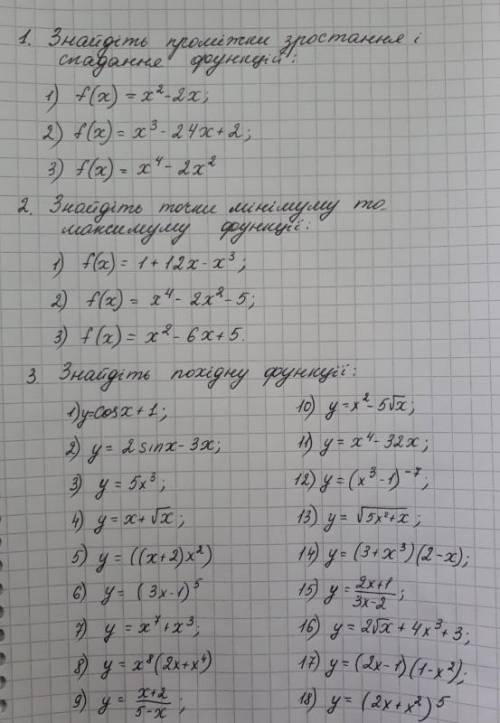 1. Знайдіть проміжки зростання і
спадання функцій:
1) f(x) = x² - 2x;
2) f(x) = x³ - 24x + 2;
3) f(x) = x⁴ - 2x²
2. Знайдіть точки мінімуму та
максимуму функції:
1) f(x) = 1 + 12x - x³;
2) f(x) = x⁴ - 2x² - 5;
3) f(x) = x² - 6x + 5.
3. Знайдіть похідну функції:
1) y = cosx + 1;
2) y = 2sinx - 3x;
3) y = 5x³;
4) y = x + √x;
5) y = ((x+2)x²)
6) y = (3x-1)⁵
7) y = x⁷ + x³;
8) y = x⁸(2x + x⁴)
9) y = (x+2)/(5-x);
10) y = x² - 5√x;
11) y = x⁴ - 32x;
12) y = (x³ - 1)⁻⁷;
13) y = √(5x² + x);
14) y = (3 + x³)(2 - x);
15) y = (2x+1)/(3x-2);
16) y = 2√x + 4x³ + 3;
17) y = (2x-1)(1-x²);
18) y = (2x + x²)⁵